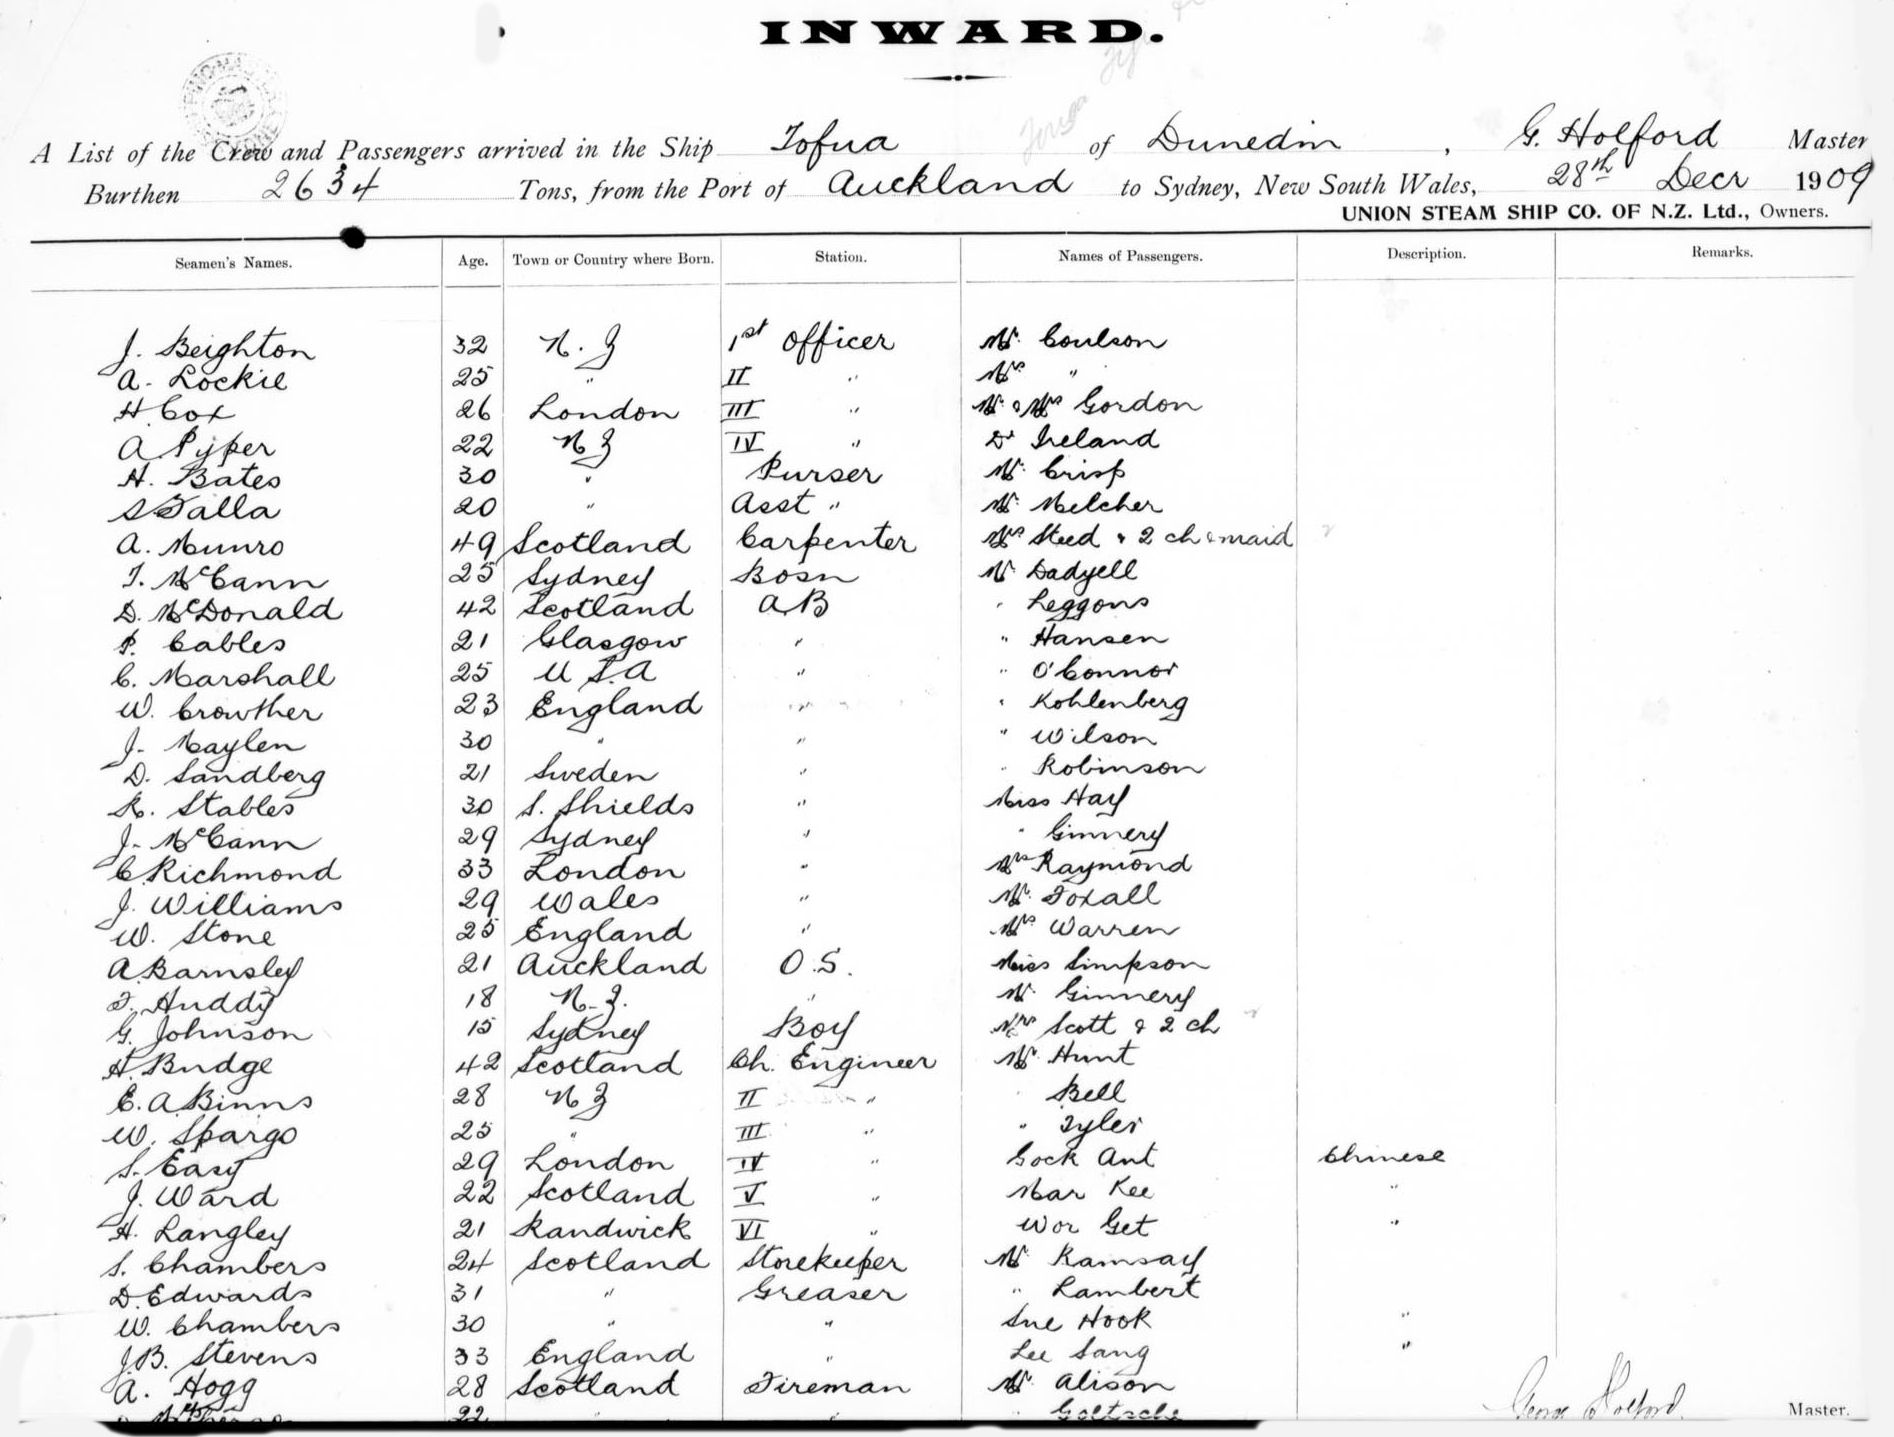 INWARD.
A List of the Crew and Passengers arrived in the Ship Tofua of Dunedin, G. Holford Master
Burthen 2634 Tons, from the Port of Auckland to Sydney, New South Wales, 28th Decr 1909
UNION STEAM SHIP CO. OF N.Z. Ltd., Owners.
Seamen's Names. Age. Town or Country where Born. Station. Names of Passengers. Description. Remarks.
J. Beighton 32 N.Z 1st Officer Mr. Coulson
A. Lockie 25 " II " Mrs "
H Cox 26 London III " Mr & Mrs Gordon
A Pyper 22 N Z IV " Dr Ireland
H. Bates 30 " Purser Mr. Crisp
S Falla 20 " Asst " Mr. Melcher
A. Munro 49 Scotland Carpenter Mrs Steed & 2 ch & maid
T. McCann 25 Sydney Bosn Mr. Dadyell
D. McDonald 42 Scotland AB " Leggons
P. Cables 21 Glasgow " " Hansen
C. Marshall 25 U S.A " " O'Connor
W. Crowther 23 England " " Kohlenberg
J. Maylen 30 " " " Wilson
D. Sandberg 21 Sweden " " Robinson
R. Stables 30 S. Shields " Miss Hay
J. McCann 29 Sydney " " Ginnery
C. Richmond 33 London " Mrs Raymond
J. Williams 29 Wales " Mr. Foxall
W. Stone 25 England " Mrs Warren
A. Barnsley 21 Auckland O.S. Miss Simpson
F. Huddy 18 N.Z. " Mr. Ginnery
G. Johnson 15 Sydney Boy Mrs Scott & 2 ch
H. Budge 42 Scotland Ch. Engineer Mr. Hunt
E. A Binns 28 N Z II " " Bell
W. Spargo 25 " III " " Tyler
S. Easy 29 London IV " Gock Ant Chinese
J. Ward 22 Scotland V " Mar Kee "
H. Langley 21 Randwick VI " Wor Get "
S. Chambers 24 Scotland Storekeeper Mr. Ramsay
D. Edwards 31 " Greaser " Lambert
W. Chambers 30 " " Sue Hook "
J.B. Stevens 33 England " Lee Sang "
A. Hogg 28 Scotland Fireman Mr. Alison
22 " Goltsche
George Holford Master.